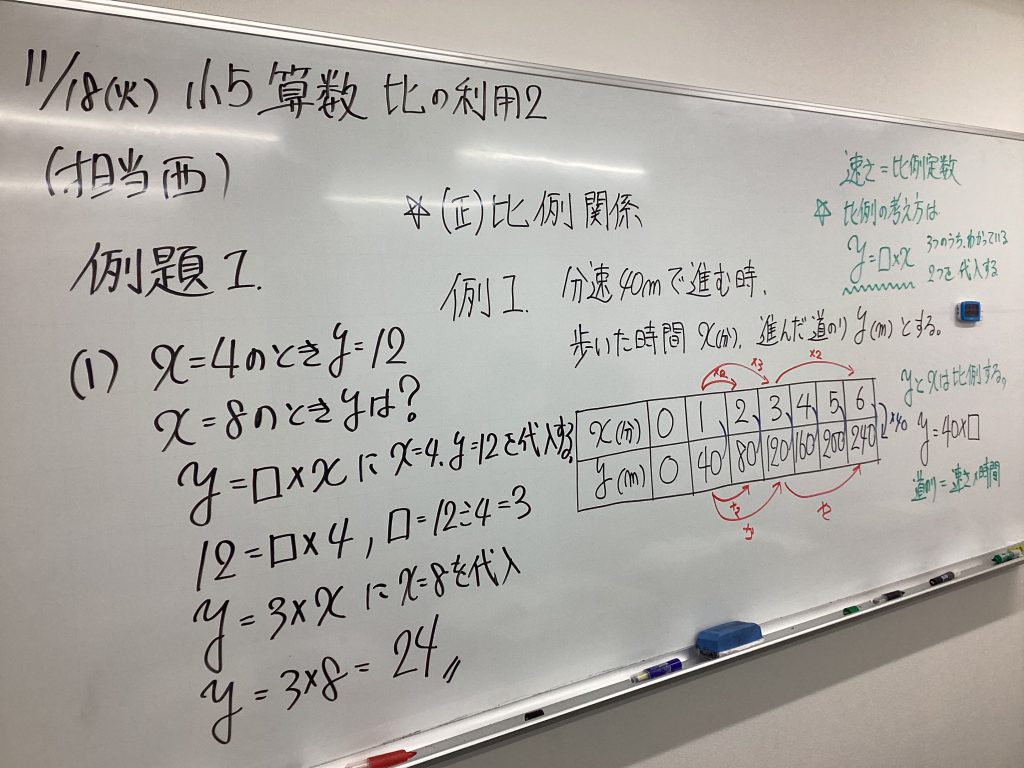 11/18(火) 小5 算数 比の利用2
(担当西)
例題1.
(1) x=4のときy=12
x=8のときyは?
y=□×xにx=4.y=12を代入する。
12=□×4, □=12÷4=3
y=3×xにx=8を代入
y=3×8=24〃
☆(正)比例関係
例1. 分速40mで進む時、
歩いた時間x(分)、進んだ道のりy(m)とする。
×2 ×3 ×2
x(分) 0 1 2 3 4 5 6
y(m) 0 40 80 120 160 200 240
×40
速さ=比例定数
☆比例の考え方は
y=□×x 3つのうち、わかっている
2つを代入する
yとxは比例する。
y=40×□
道のり=速さ×時間